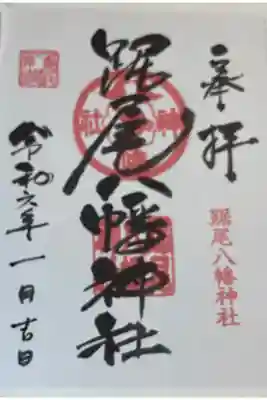 奉拝
踞尾八幡神社
踞尾八幡神社
令和六年一月吉日